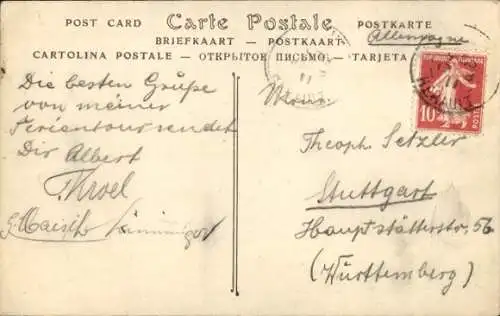 POST CARD Carte Postale POSTKARTE
BRIEFKAART — POSTKAART
CARTOLINA POSTALE — ОТКРЫТОЕ ПИСЬМО — TARJETA
Allemagne
10
POSTES
Die besten Grüße
von meiner
Ferientour sendet
Dir Albert
G. Maisch
Theoph. Setzler
Stuttgart
Hauptstätterstr. 56
(Württemberg)